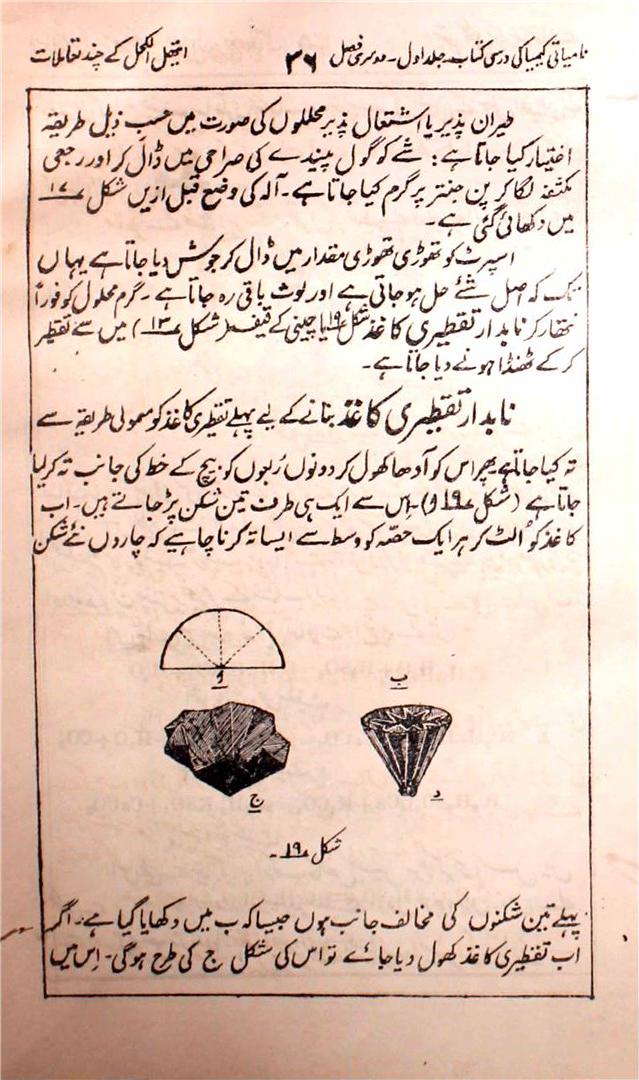 نامیاتی کیمیا کی درسی کتاب۔ جلد اول۔ دوسری فصل ۳۶ ایتھیل الکحل کے چند تعاملات
طیران پذیر یا اشتعال پذیر محللوں کی صورت میں حسب ذیل طریقہ
اختیار کیا جاتا ہے: شے کو گول پیندے کی صراحی میں ڈال کر اور رجعی
مکثفہ لگا کر پن جنتر پر گرم کیا جاتا ہے۔ آلہ کی وضع قبل ازیں شکل ۱۷
میں دکھائی گئی ہے۔
اسپرٹ کو تھوڑی تھوڑی مقدار میں ڈال کر جوش دیا جاتا ہے یہاں
تک کہ اصل شے حل ہو جاتی ہے اور لوث باقی رہ جاتا ہے۔ گرم محلول کو فوراً
نتھار کر نابدار تقطیری کاغذ شکل ۱۹ یا چینی کے قیف (شکل ۱۳) میں سے تقطیر
کر کے ٹھنڈا ہونے دیا جاتا ہے۔
نابدار تقطیری کاغذ بنانے کے لیے پہلے تقطیری کاغذ کو معمولی طریقہ سے
تہ کیا جاتا ہے پھر اس کو آدھا کھول کر دونوں ربعوں کو بیچ کے خط کی جانب تہ کر لیا
جاتا ہے (شکل ۱۹ و)۔ اس سے ایک ہی طرف تین شکن پڑ جاتے ہیں۔ اب
کاغذ کو الٹ کر ہر ایک حصّہ کو وسط سے ایسا تہ کرنا چاہیے کہ چاروں نئے شکن
و
ب
ج
د
شکل ۱۹۔
پہلے تین شکنوں کی مخالف جانب ہوں جیسا کہ ب میں دکھایا گیا ہے۔ اگر
اب تقطیری کاغذ کھول دیا جائے تو اس کی شکل ج کی طرح ہوگی۔ اس میں